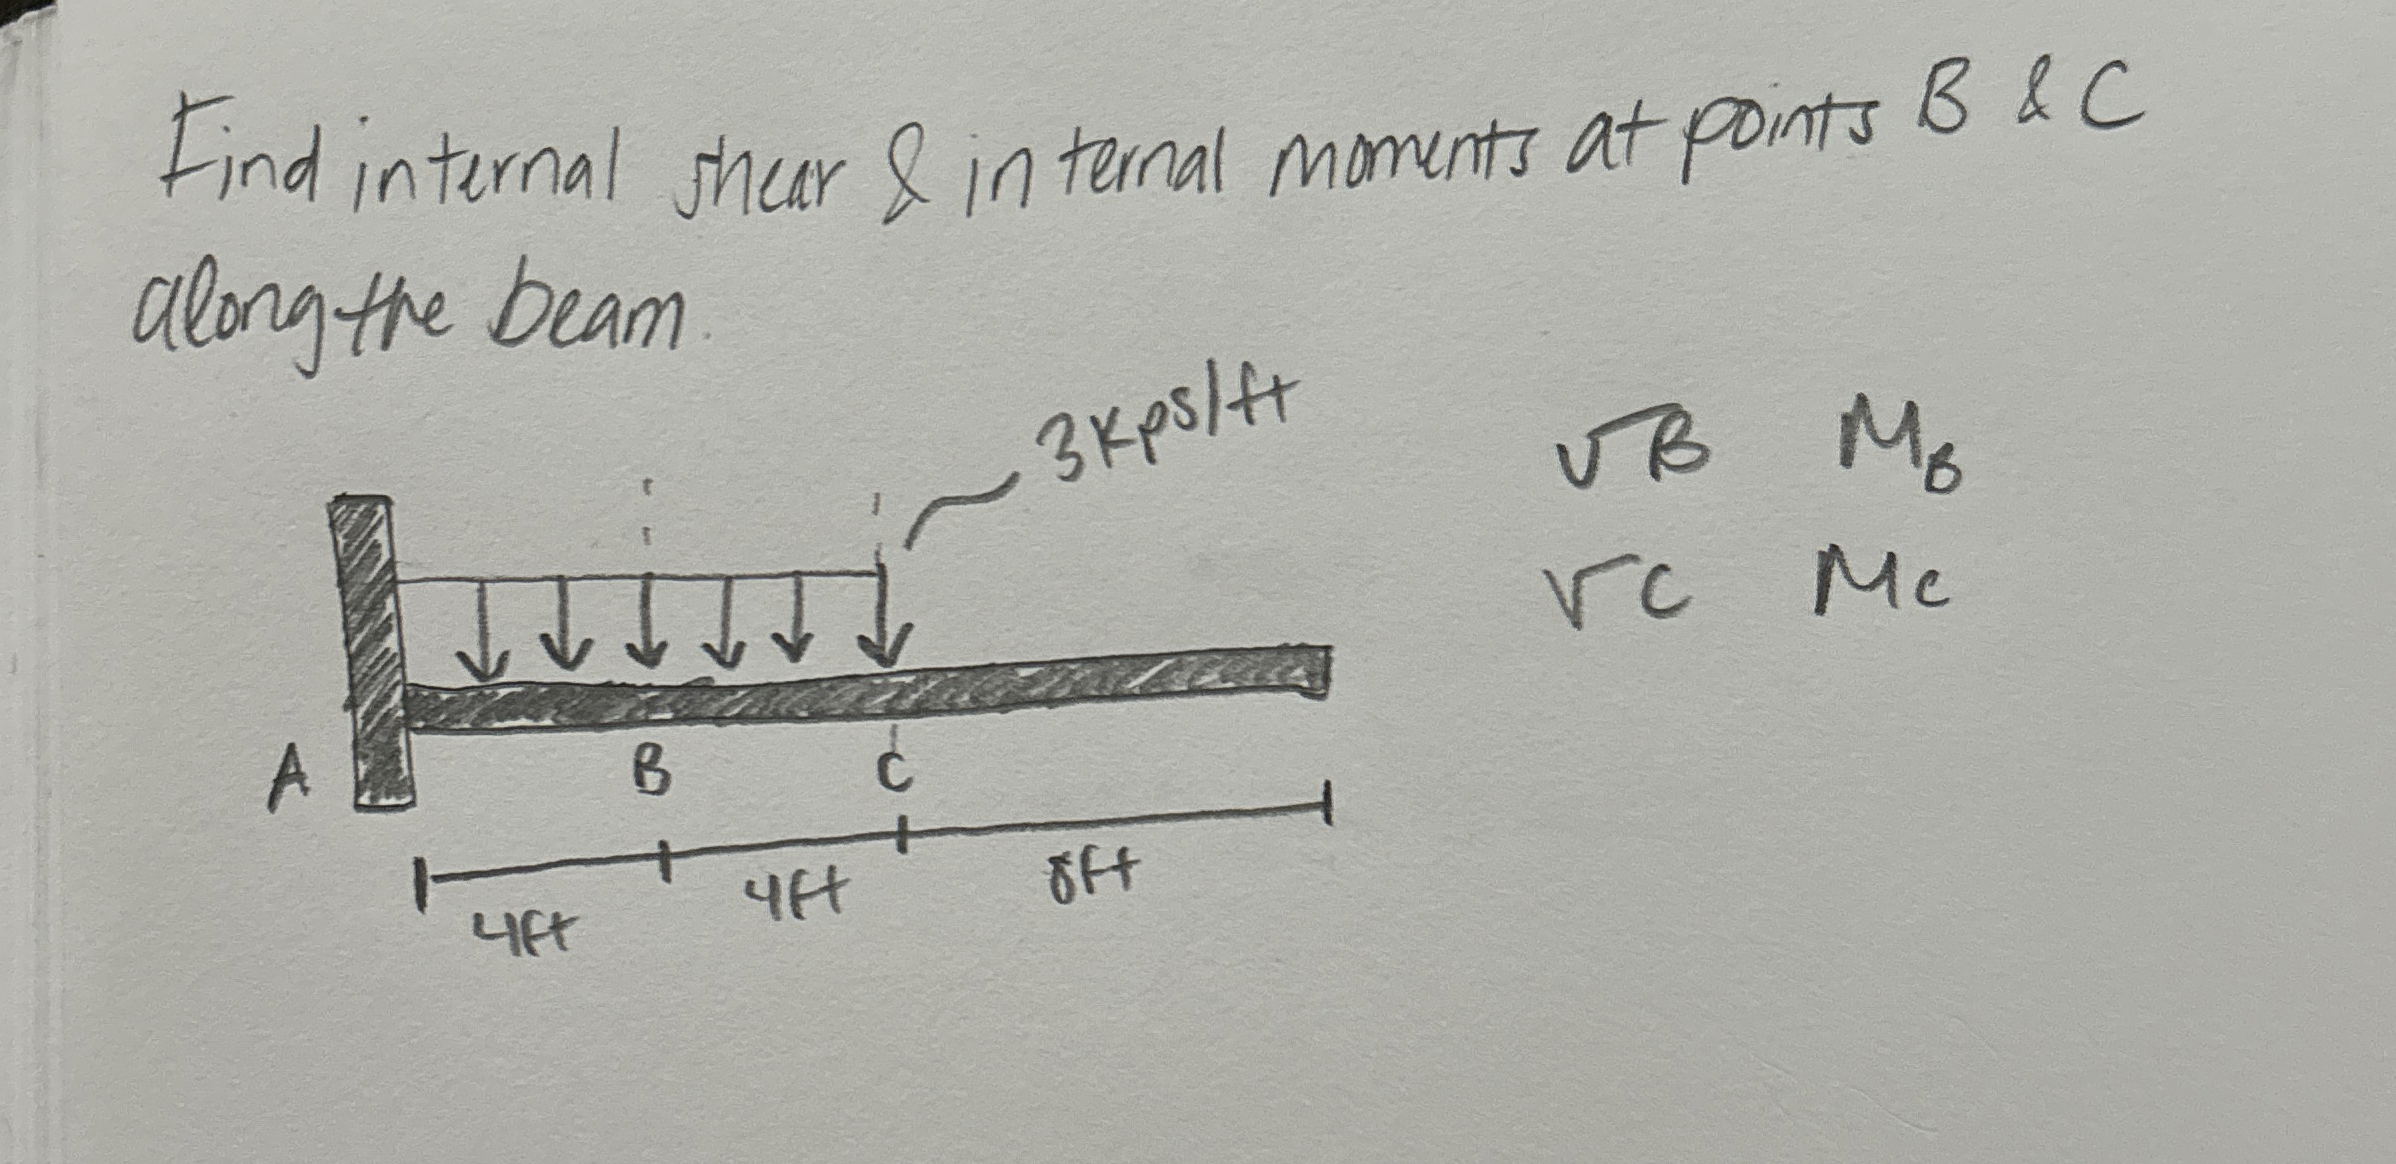 Find internal shear & internal moments at points B & C
along the beam.
3kps/ft
VB MB
VC Mc
A
B
C
4ft
4ft
8ft